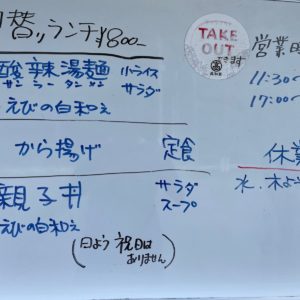 替リランチ ¥800-
酸辣湯麺 小ライス
サンラータンメン サラダ
えびの白和え
から揚げ 定食
親子丼 サラダ
えびの白和え スープ
(日よう 祝日は
ありません)
TAKE
OUT
できます
営業
11:30~
17:00~
休業
水、木よ